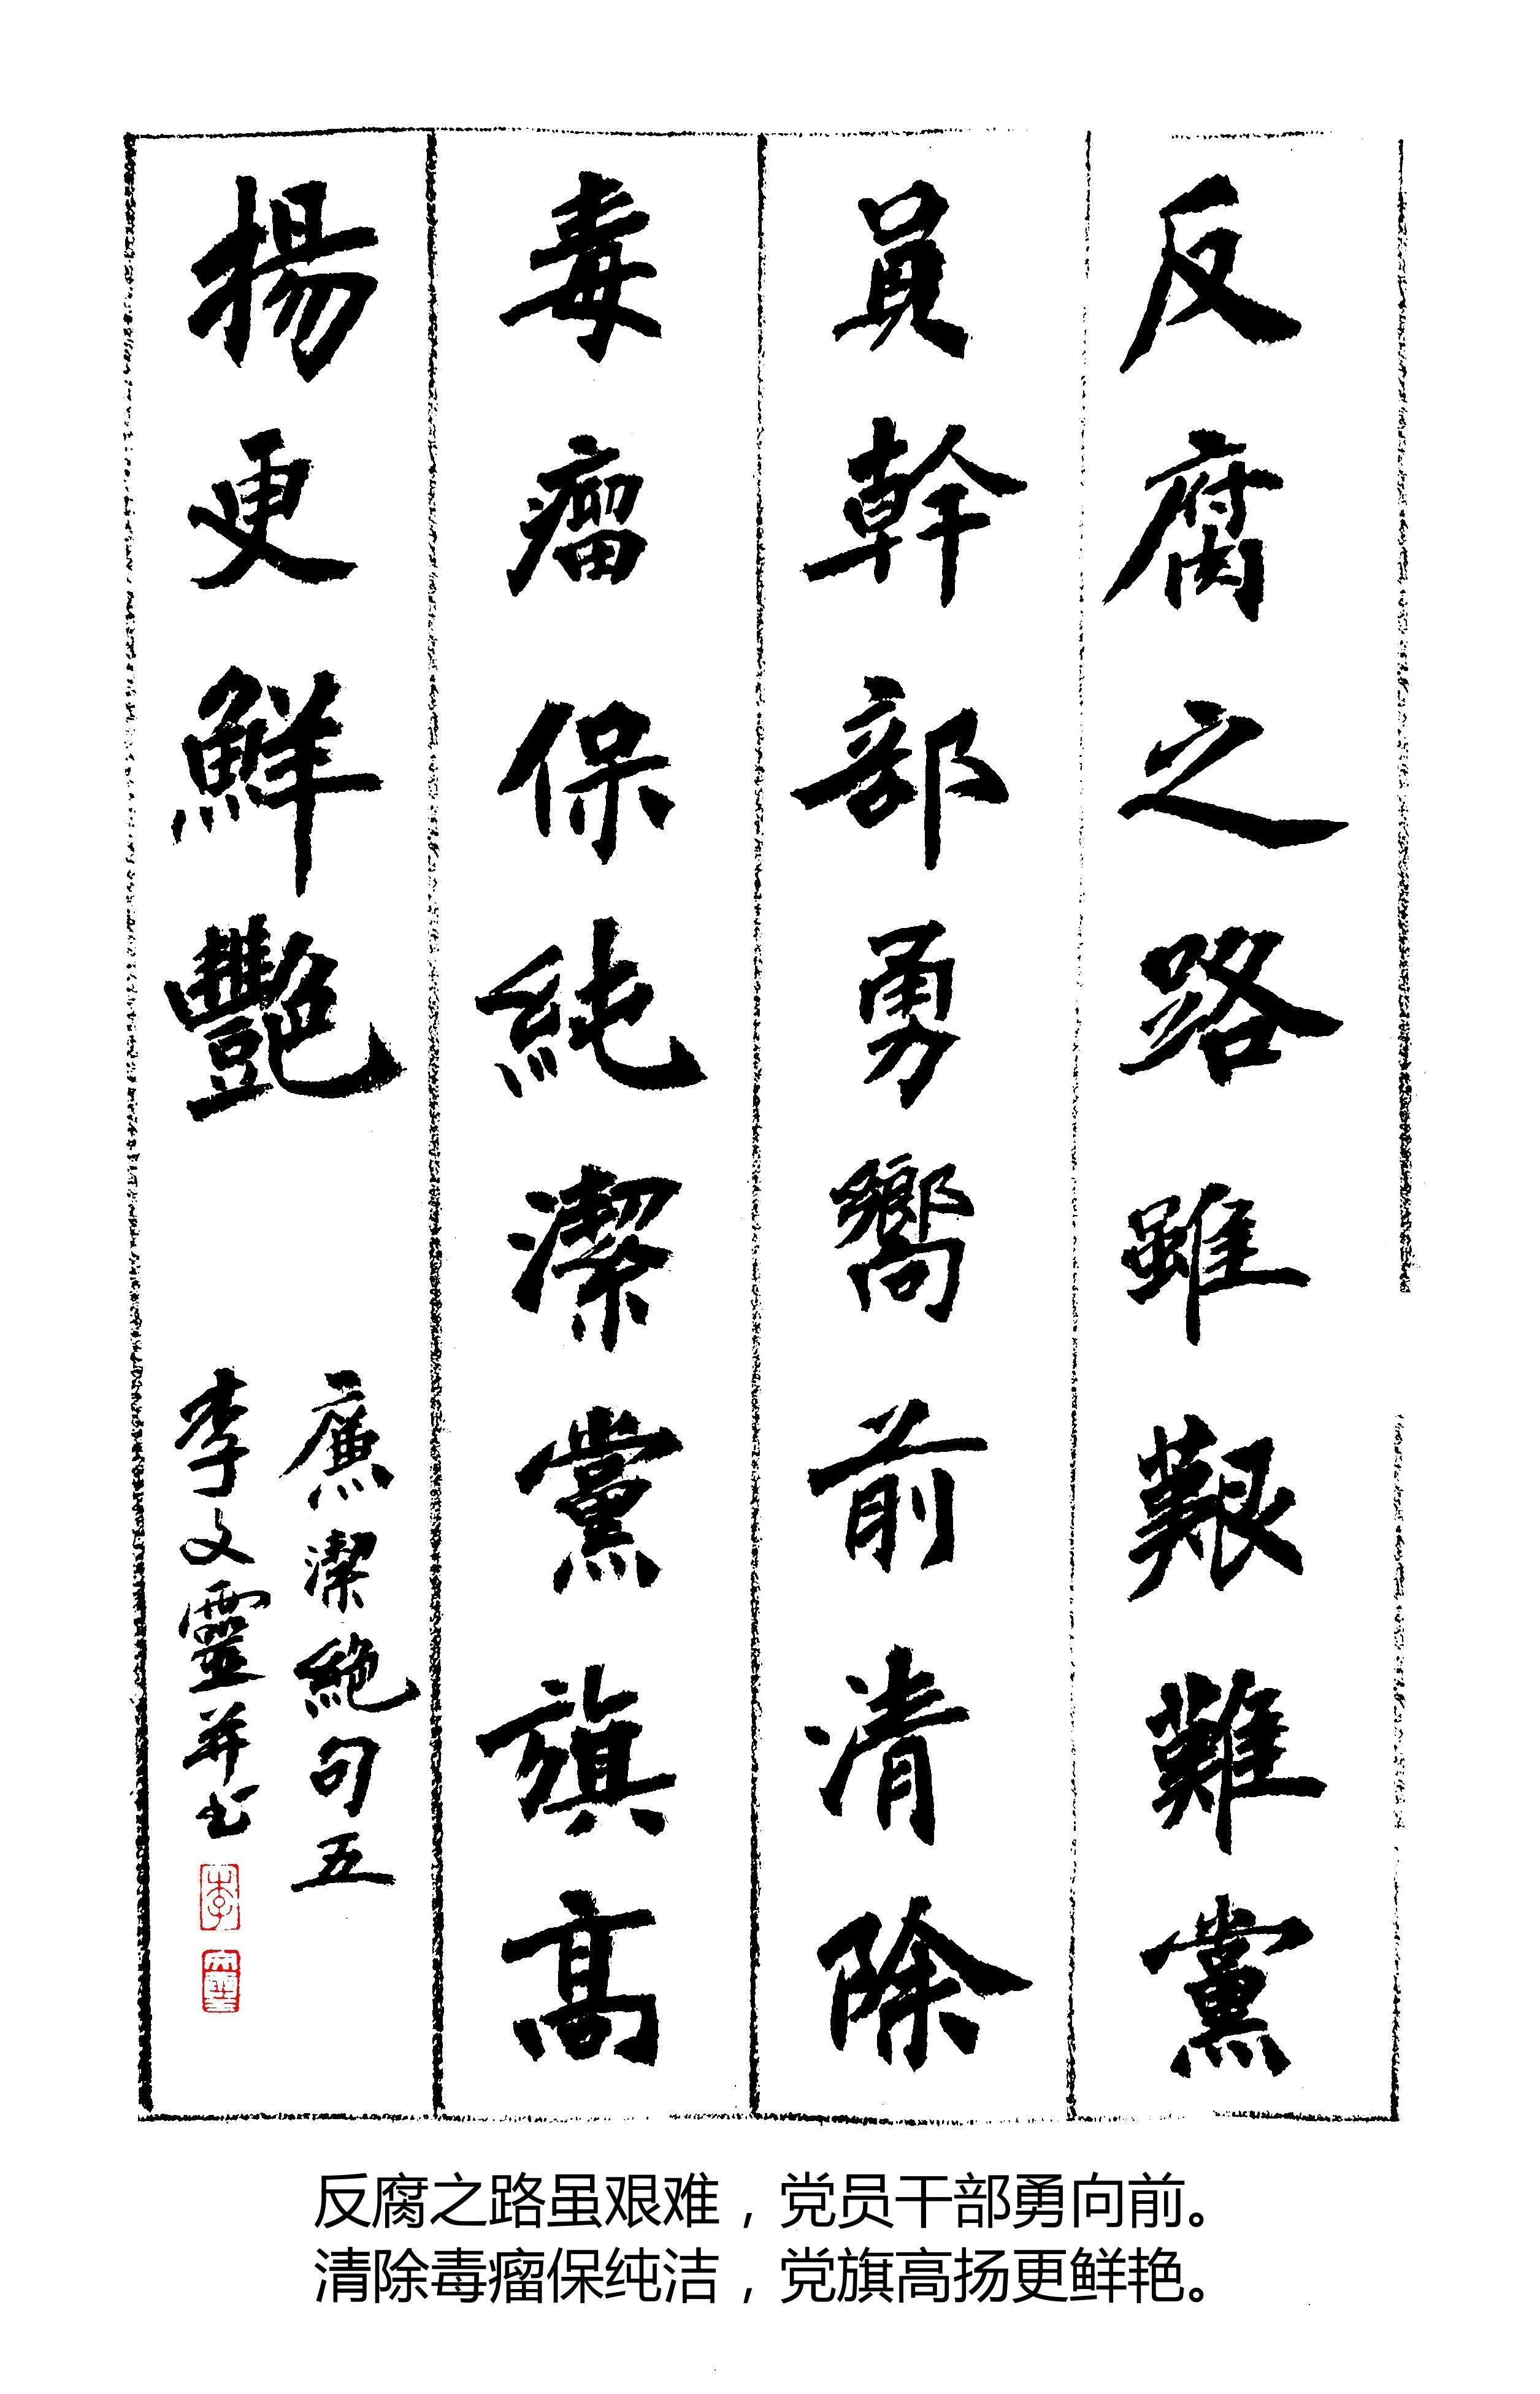 反腐之路雖艱難黨
員幹部勇嚮前清除
毒瘤保純潔黨旗高
揚更鮮艷
廉潔絕句五
李文靈并书
李
文靈
反腐之路虽艰难，党员干部勇向前。
清除毒瘤保纯洁，党旗高扬更鲜艳。